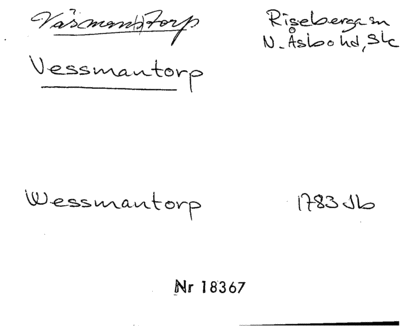 Väsmanstorp
Riseberga sn
N. Åsbo hd, Sk
Vessmantorp
Wessmantorp 1783 Jb
Nr 18367